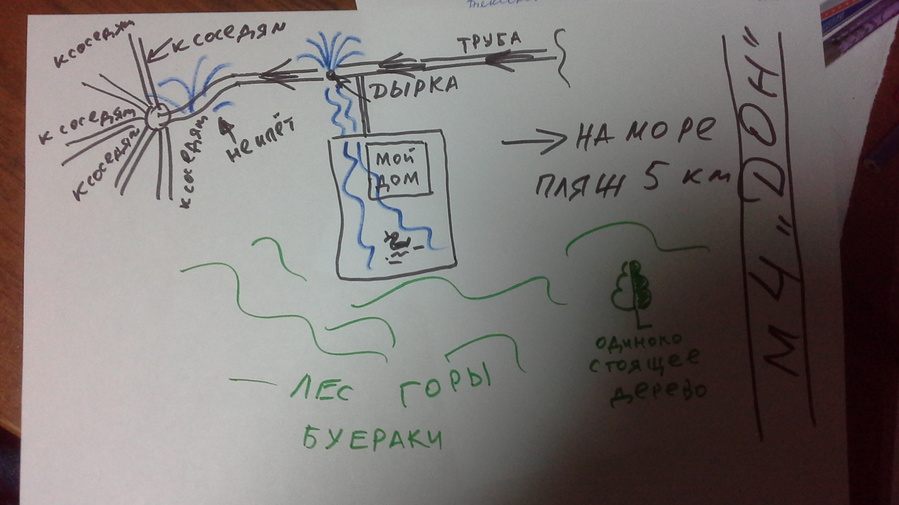 К СОСЕДЯМ
К СОСЕДЯМ
ТРУБА
ДЫРКА
К СОСЕДЯМ
К СОСЕДЯМ
К СОСЕДЯМ
МОЙ
ДОМ
НА МОРЕ
ПЛЯЖ 5 км
М 4 "ДОН"
ОДИНОКО
СТОЯЩЕЕ
ДЕРЕВО
ЛЕС ГОРЫ
БУЕРАКИ